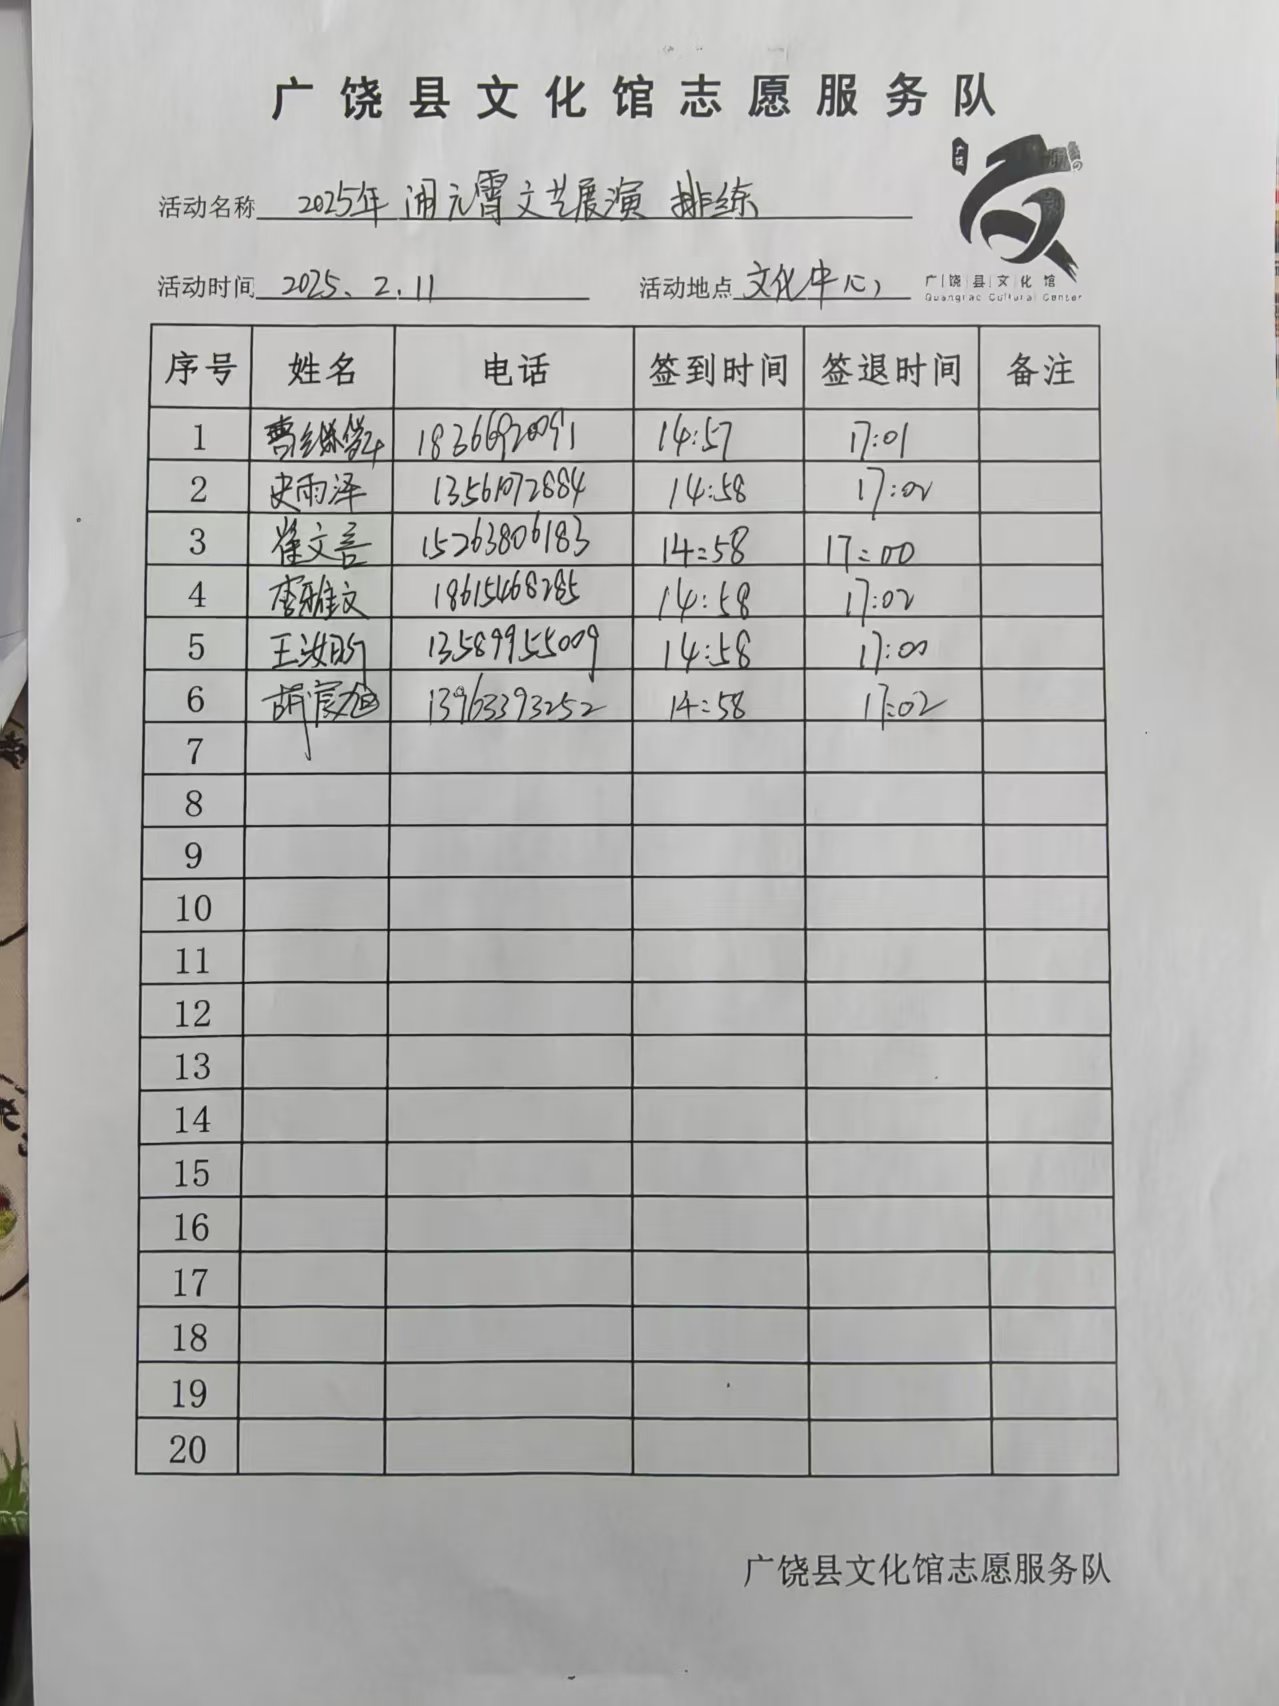 广饶县文化馆志愿服务队
活动名称 2025年 闹元霄文艺展演 排练
活动时间 2025、2.11 活动地点 文化中心
广饶县文化馆
Guangrao Cultural Center
序号 姓名 电话 签到时间 签退时间 备注
1 18366920091 14:57 17:01
2 史雨泽 13561072884 14:58 17:02
3 崔文言 15263806183 14:58 17:00
4 李雅文 18615468285 14:58 17:02
5 王汝昀 13589955009 14:58 17:00
6 13963393252 14:58 17:02
7
8
9
10
11
12
13
14
15
16
17
18
19
20
广饶县文化馆志愿服务队